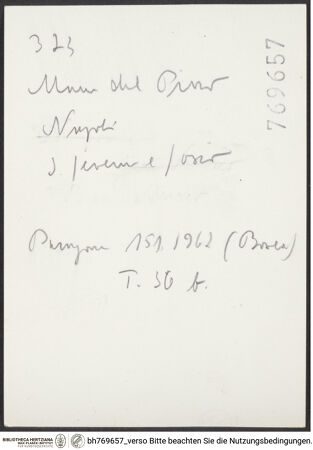 323
769657
Marco del Pino
Napoli
S. Severino e Sossio
Paragone 151. 1962 (Borea)
T. 36 b.
BIBLIOTHECA HERTZIANA
MAX-PLANCK-INSTITUT
FÜR KUNSTGESCHICHTE
bh769657_verso Bitte beachten Sie die Nutzungsbedingungen.